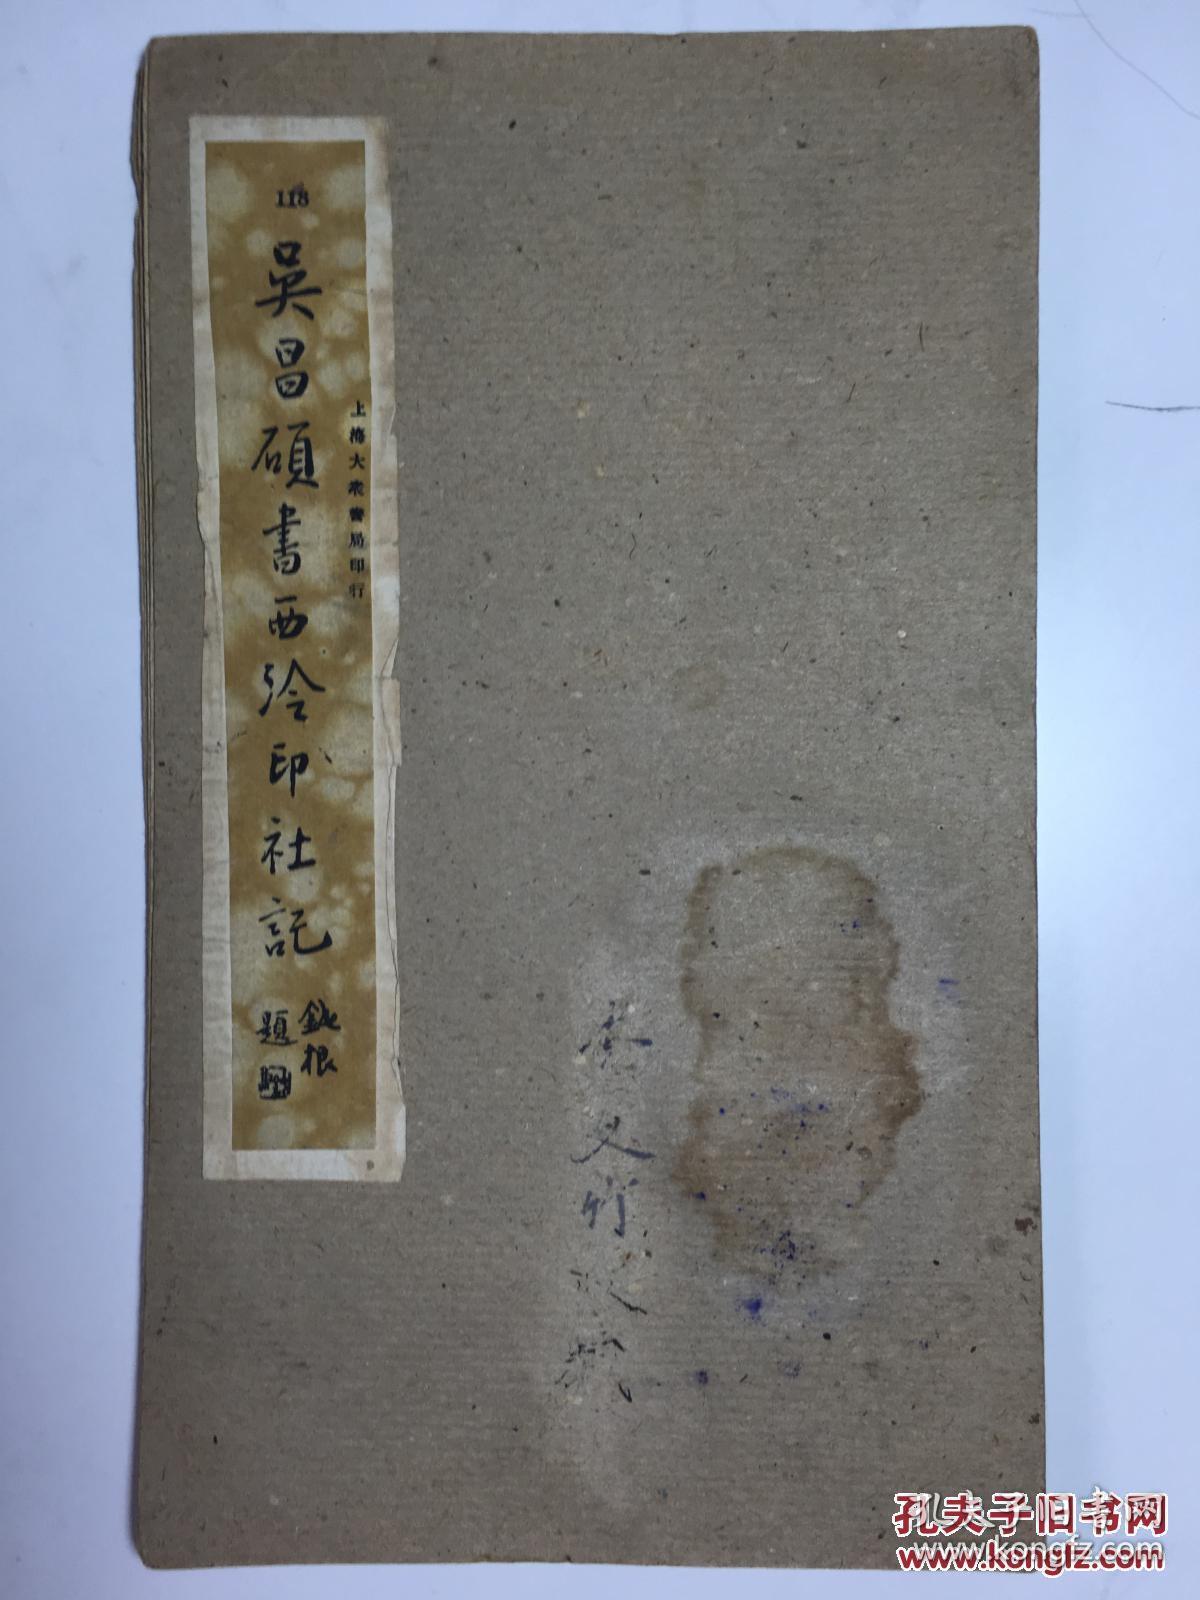 118
吳昌碩書西泠印社記
鈍根
題
上海大衆書局印行
又竹
孔夫子旧书网
www.kongfz.com